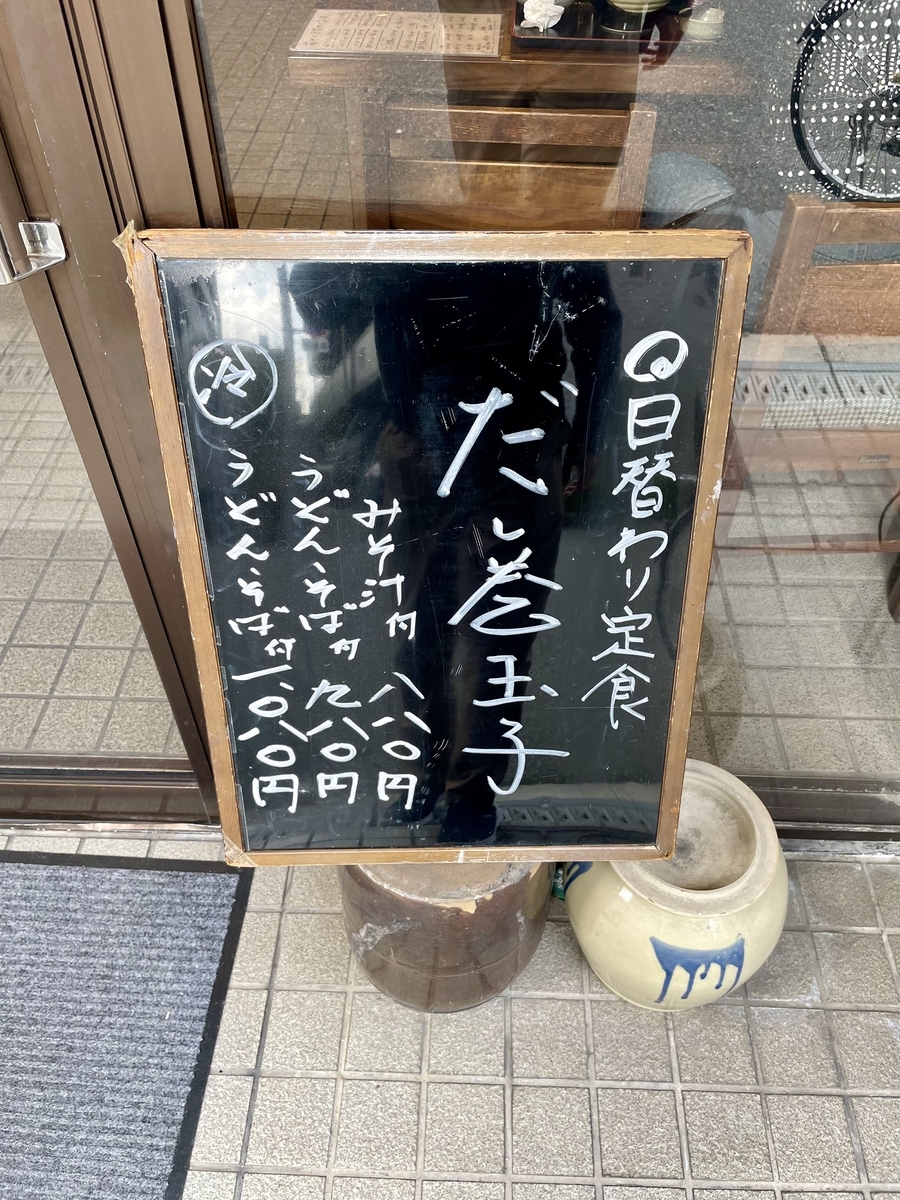 ◎日替わり定食
だし巻玉子
みそ汁付 八八〇円
うどん、そば付 九八〇円
冷 うどん、そば付 一、〇八〇円